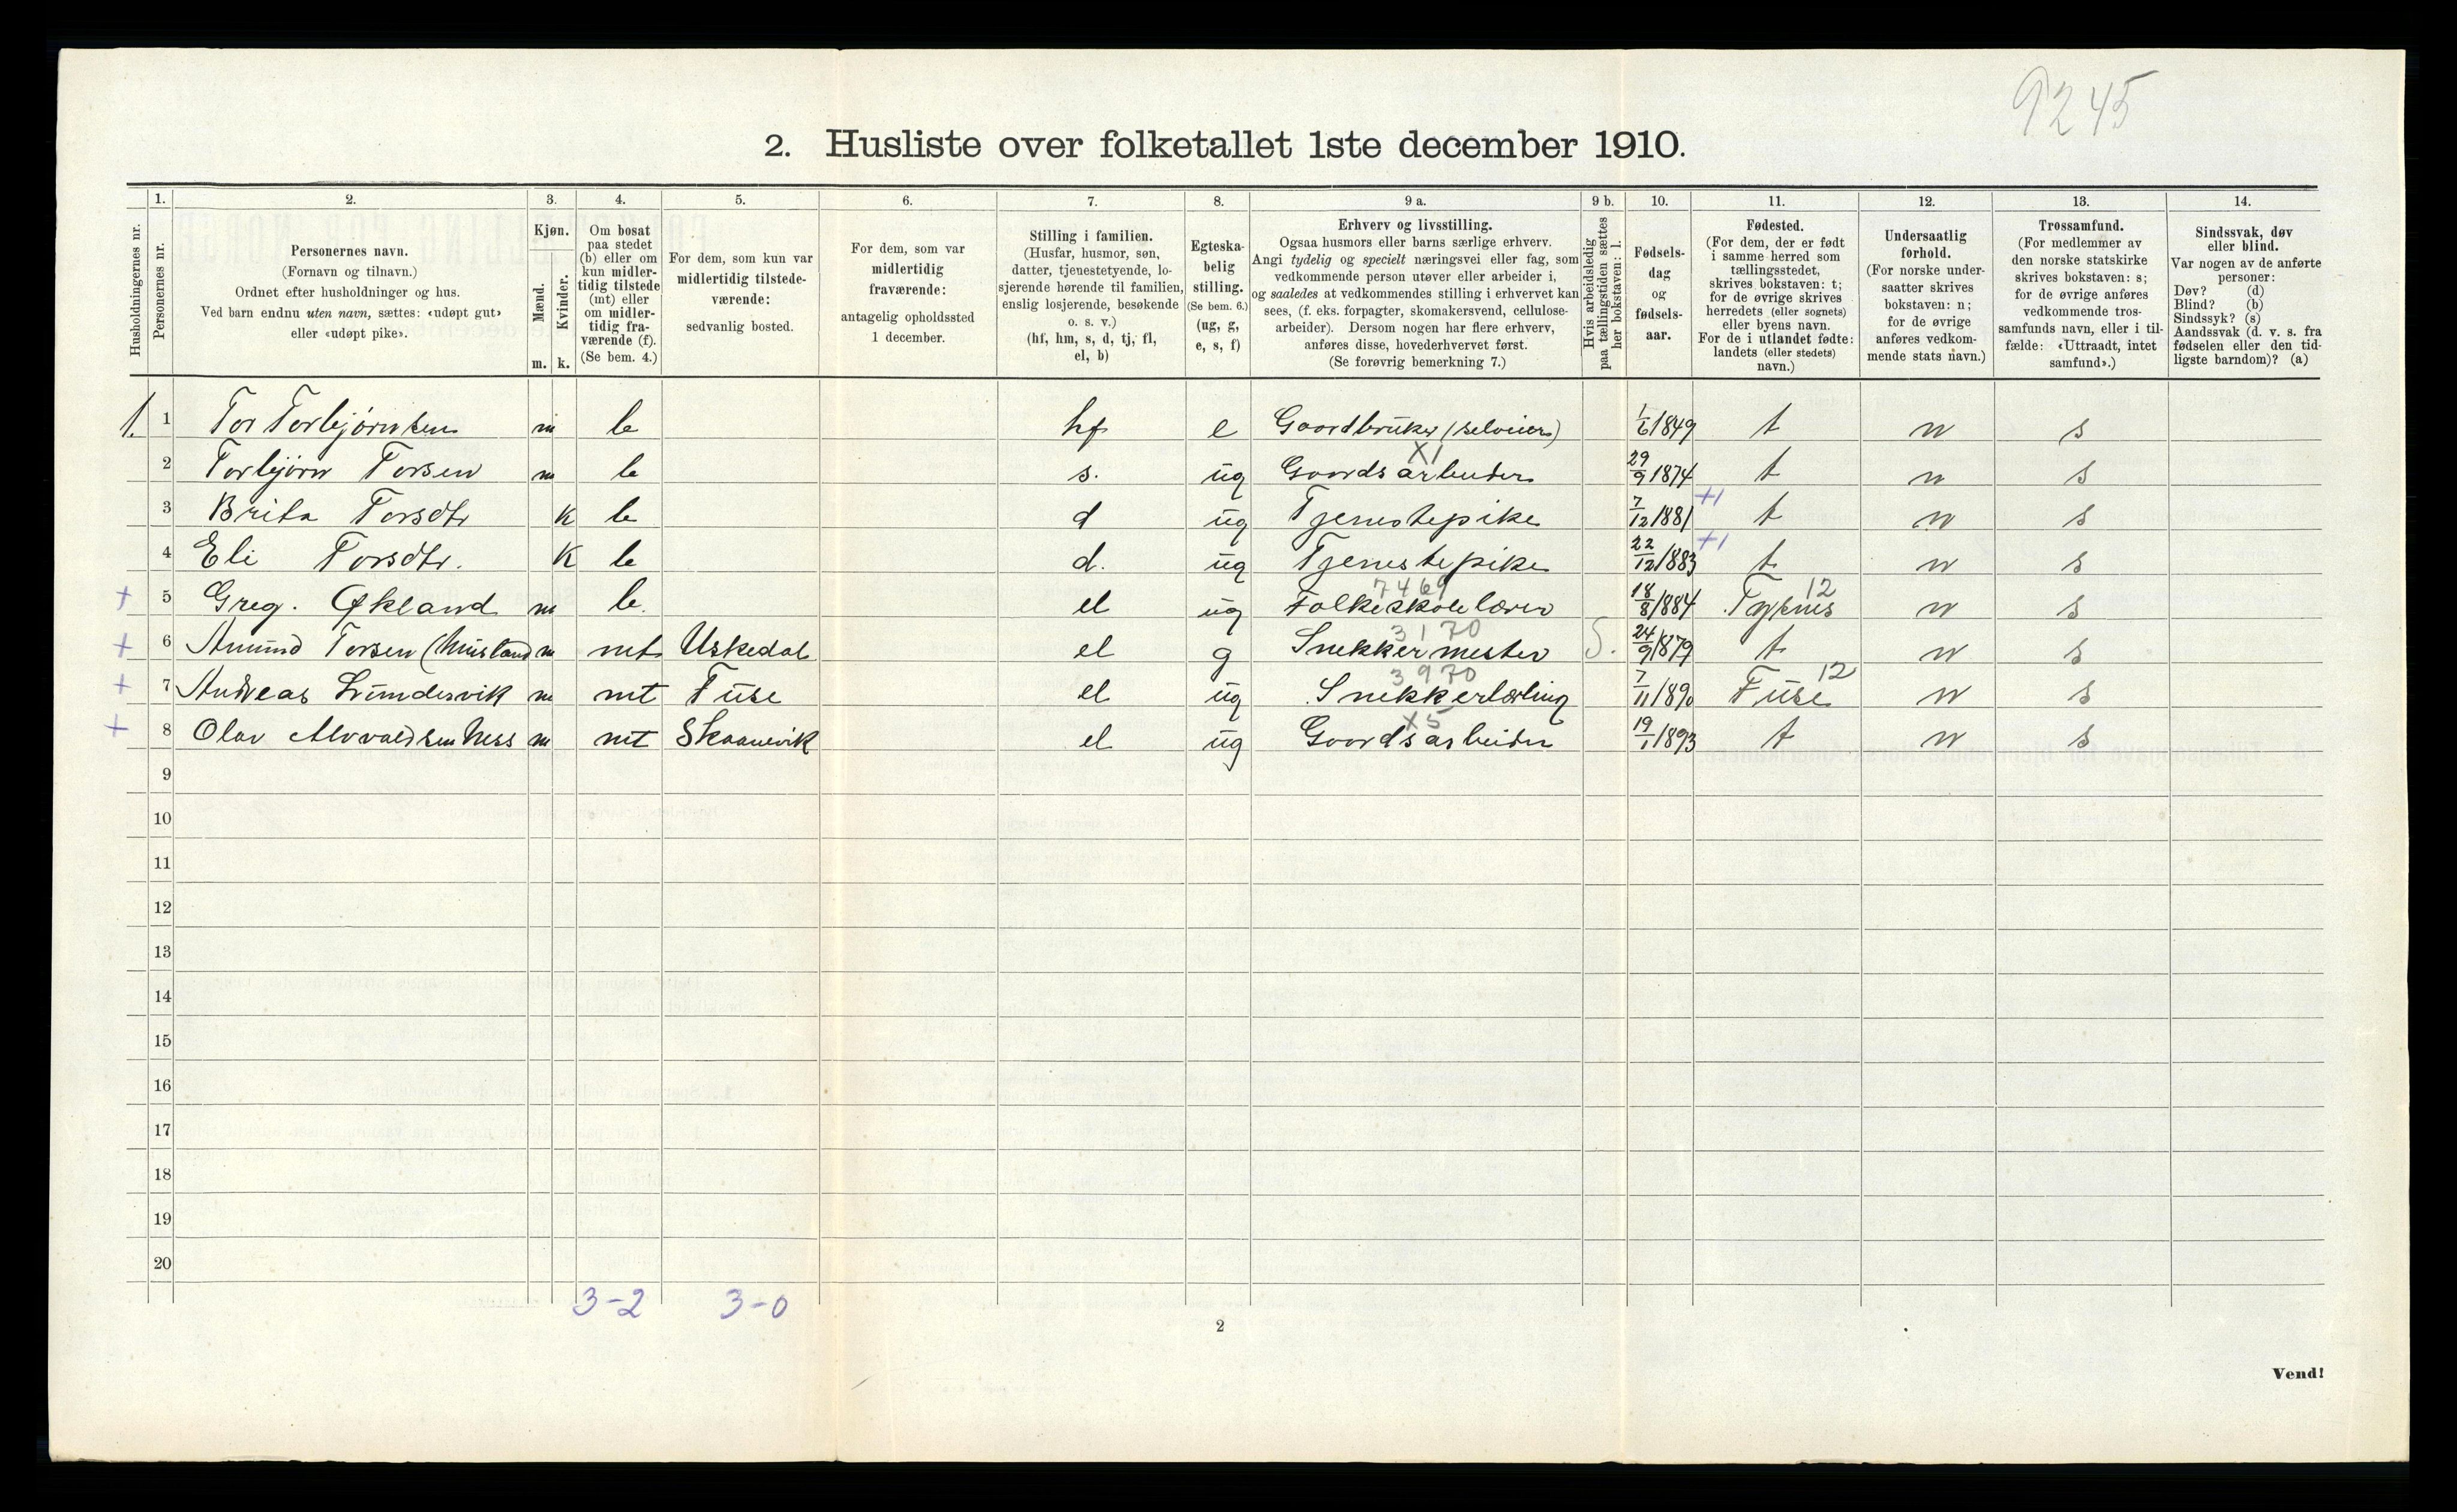 9245
2. Husliste over folketallet 1ste december 1910.
Husholdningernes nr.
1. Personernes nr.
2. Personernes navn. (Fornavn og tilnavn.) Ordnet efter husholdninger og hus. Ved barn endnu uten navn, sættes: «udøpt gut» eller «udøpt pike».
3. Kjøn. Mænd. m. Kvinder. k.
4. Om bosat paa stedet (b) eller om kun midler-tidig tilstede (mt) eller om midler-tidig fra-værende (f). (Se bem. 4.)
5. For dem, som kun var midlertidig tilstede-værende: sedvanlig bosted.
6. For dem, som var midlertidig fraværende: antagelig opholdssted 1 december.
7. Stilling i familien. (Husfar, husmor, søn, datter, tjenestetyende, lo-sjerende hørende til familien, enslig losjerende, besøkende o. s. v.) (hf, hm, s, d, tj, fl, el, b)
8. Egteska-belig stilling. (Se bem. 6.) (ug, g, e, s, f)
9 a. Erhverv og livsstilling. Ogsaa husmors eller barns særlige erhverv. Angi tydelig og specielt næringsvei eller fag, som vedkommende person utøver eller arbeider i, og saaledes at vedkommendes stilling i erhvervet kan sees, (f. eks. forpagter, skomakersvend, cellulose-arbeider). Dersom nogen har flere erhverv, anføres disse, hovederhvervet først. (Se forøvrig bemerkning 7.)
9 b. Hvis arbeidsledig paa tællingstiden sættes her bokstaven: l.
10. Fødsels-dag og fødsels-aar.
11. Fødested. (For dem, der er født i samme herred som tællingsstedet, skrives bokstaven: t; for de øvrige skrives herredets (eller sognets) eller byens navn. For de i utlandet fødte: landets (eller stedets) navn.)
12. Undersaatlig forhold. (For norske under-saatter skrives bokstaven: n; for de øvrige anføres vedkom-mende stats navn.)
13. Trossamfund. (For medlemmer av den norske statskirke skrives bokstaven: s; for de øvrige anføres vedkommende tros-samfunds navn, eller i til-fælde: «Uttraadt, intet samfund».)
14. Sindssvak, døv eller blind. Var nogen av de anførte personer: Døv? (d) Blind? (b) Sindssyk? (s) Aandssvak (d. v. s. fra fødselen eller den tid-ligste barndom)? (a)
1. 1 Tor Torbjørnsen m b hf e Gaardbruker (selveier) 1/6 1849 t n s
X1
2 Torbjørn Torsen m b s. ug Gaardsarbeider 29/9 1874 t n s
+1
3 Brita Torsdtr k b d ug Tjenestepike 7/12 1881 t n s
+1
4 Eli Torsdtr. k b d. ug Tjenestepike 22/12 1883 t n s
7469 12
+ 5 Greg. Økland m b. el ug Folkeskolelærer 18/8 1884 Tysnes n s
3170
+ 6 Amund Torsen (Musland m mt Uskedal el g Snekkermester S. 24/9 1879 t n s
3970 12
+ 7 Andreas Lundesvik m mt Fuse el ug Snekkerlærling 7/11 1890 Fuse n s
X5
+ 8 Olav Alvvaldsen Næss m mt Skaanevik el ug Gaardsarbeider 19/1 1893 t n s
9
10
11
12
13
14
15
16
17
18
19
20
3-2 3-0
2
Vend!